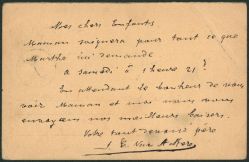 Mes chers Enfants
Maman soignera pour tout ce que
Marthe lui demande
a samedi à 1 heure 21?
En attendant le bonheur de vous
voir Maman et moi nous vous
envoyons nos meilleurs baisers.
Votre tout dévoué père